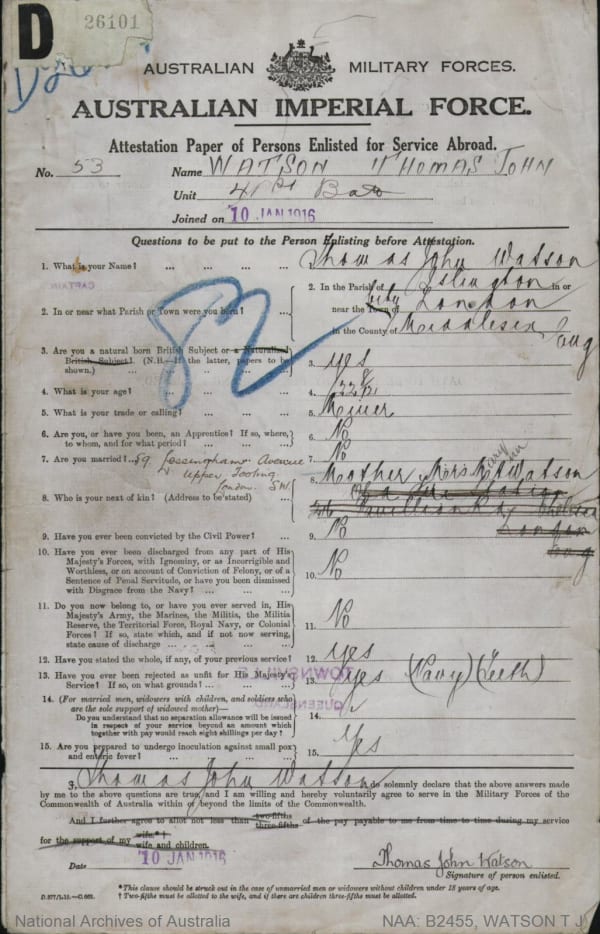 D
26101
AUSTRALIAN MILITARY FORCES.
AUSTRALIAN IMPERIAL FORCE.
Attestation Paper of Persons Enlisted for Service Abroad.
No. 53 Name WATSON THOMAS JOHN
Unit 41st Batn
Joined on 10 JAN 1916
Questions to be put to the Person Enlisting before Attestation.
1. What is your Name? ... ... ... Thomas John Watson
CAPTAIN
2. In or near what Parish or Town were you born? ...
2. In the Parish of Islington in or
near the Town of City London
in the County of Middlesex Eng
82
3. Are you a natural born British Subject or a Naturalized
British Subject? (N.B.—If the latter, papers to be
shown.) ... 3. yes
4. What is your age? ... 4. 22
5. What is your trade or calling? ... 5. Miner
6. Are you, or have you been, an Apprentice? If so, where,
to whom, and for what period? ... 6. No
7. Are you married? ... 7. No
59 Lessingham Avenue
Upper Tooting
London S.W.
8. Who is your next of kin? (Address to be stated) ... 8. Mother Mrs M Watson
Mary Ann
Pavillion Rd Chelsea
London
Eng
9. Have you ever been convicted by the Civil Power? ... 9. No
10. Have you ever been discharged from any part of His
Majesty's Forces, with Ignominy, or as Incorrigible and
Worthless, or on account of Conviction of Felony, or of a
Sentence of Penal Servitude, or have you been dismissed
with Disgrace from the Navy? ... 10. No
11. Do you now belong to, or have you ever served in, His
Majesty's Army, the Marines, the Militia, the Militia
Reserve, the Territorial Force, Royal Navy, or Colonial
Forces? If so, state which, and if not now serving,
state cause of discharge ... 11. No
12. Have you stated the whole, if any, of your previous service? 12. yes
13. Have you ever been rejected as unfit for His Majesty's
Service? If so, on what grounds? ... 13. yes (Navy) (Teeth)
TOWNSVILLE
QUEENSLAND
14. (For married men, widowers with children, and soldiers who
are the sole support of widowed mother)—
Do you understand that no separation allowance will be issued
in respect of your service beyond an amount which
together with pay would reach eight shillings per day? 14.
15. Are you prepared to undergo inoculation against small pox
and enteric fever? ... 15. Yes
I, Thomas John Watson do solemnly declare that the above answers made
by me to the above questions are true, and I am willing and hereby voluntarily agree to serve in the Military Forces of the
Commonwealth of Australia within or beyond the limits of the Commonwealth.
And I further agree to allot not less than two-fifths three-fifths of the pay payable to me from time to time during my service
for the support of my wife.* wife and children.†
Date 10 JAN 1916
Thomas John Watson
Signature of person enlisted.
*This clause should be struck out in the case of unmarried men or widowers without children under 18 years of age.
† Two-fifths must be allotted to the wife, and if there are children three-fifths must be allotted.
D.877/1.15.—C.663.
National Archives of Australia
NAA: B2455, WATSON T J